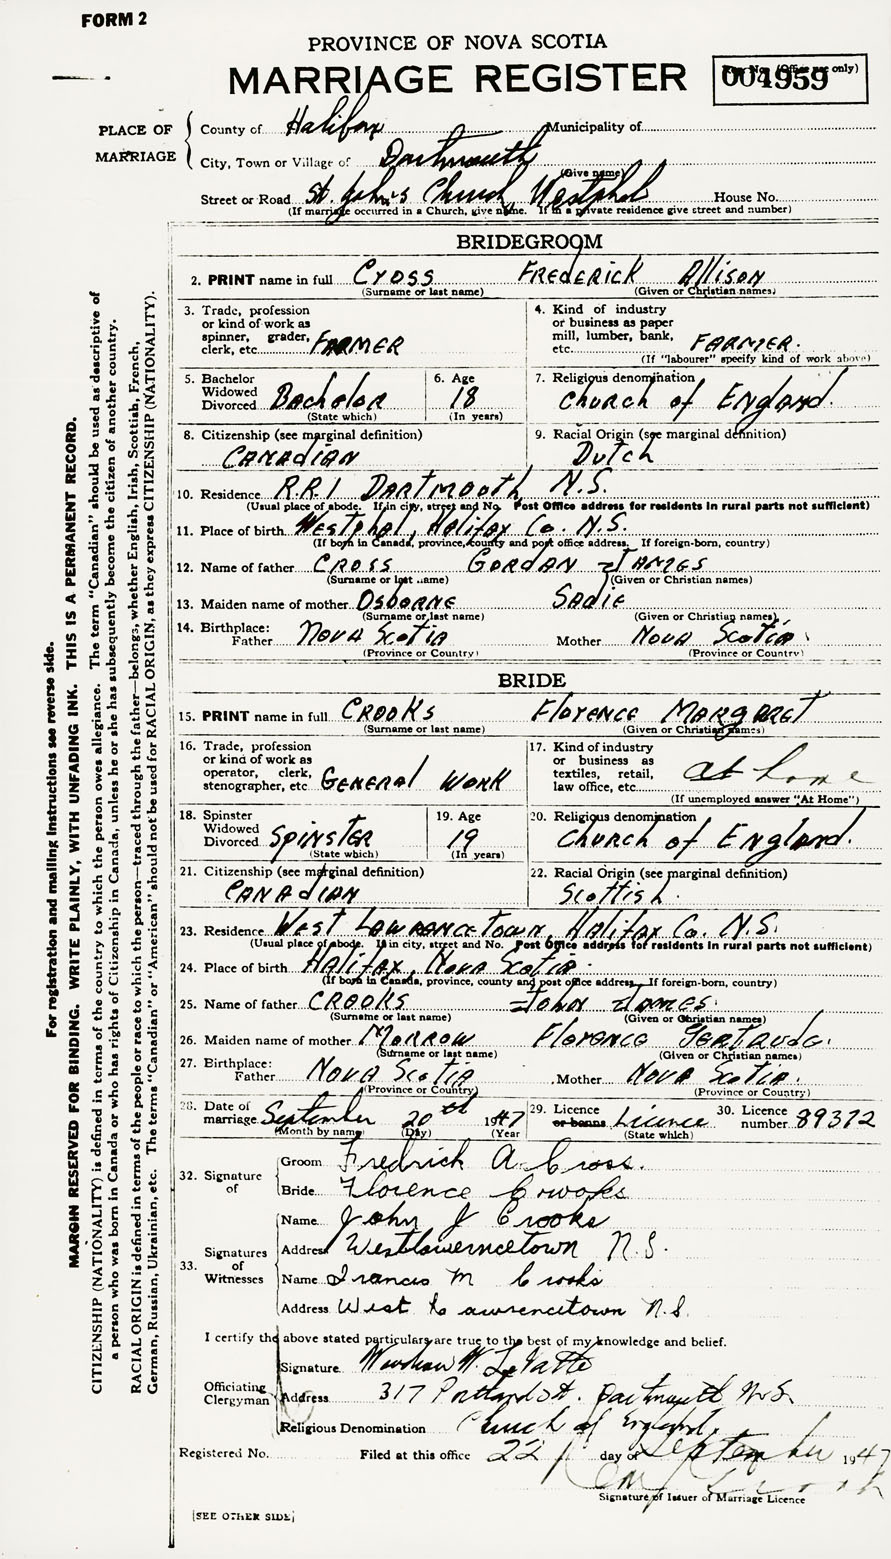 FORM 2
PROVINCE OF NOVA SCOTIA
MARRIAGE REGISTER
(Office use only)
004959
PLACE OF MARRIAGE
County of Halifax Municipality of
City, Town or Village of Dartmouth
(Give name)
Street or Road St. John's Church, Westphal House No.
(If marriage occurred in a Church, give name. If in a private residence give street and number)
BRIDEGROOM
2. PRINT name in full CROSS FREDERICK Allison
(Surname or last name) (Given or Christian names)
3. Trade, profession or kind of work as spinner, grader, clerk, etc. FARMER
4. Kind of industry or business as paper mill, lumber, bank, etc. FARMER.
(If "labourer" specify kind of work above)
5. Bachelor Widowed Divorced Bachelor
(State which)
6. Age 18
(In years)
7. Religious denomination Church of England.
8. Citizenship (see marginal definition) CANAdiAN
9. Racial Origin (see marginal definition) Dutch
10. Residence R.R.1 DARTMOUTH N.S.
(Usual place of abode. If in city, street and No. Post Office address for residents in rural parts not sufficient)
11. Place of birth Westphal, Halifax Co. N.S.
(If born in Canada, province, county and post office address. If foreign-born, country)
12. Name of father CROSS GORDAN JAMES
(Surname or last name) (Given or Christian names)
13. Maiden name of mother OSBORNE SADIE
(Surname or last name) (Given or Christian names)
14. Birthplace: Father NOVA Scotia Mother NOVA Scotia
(Province or Country) (Province or Country)
BRIDE
15. PRINT name in full CROOKS FlorENCE MARGARET
(Surname or last name) (Given or Christian names)
16. Trade, profession or kind of work as operator, clerk, stenographer, etc. GENERAl WORK
17. Kind of industry or business as textiles, retail, law office, etc. at home
(If unemployed answer "At Home")
18. Spinster Widowed Divorced SPINSTER
(State which)
19. Age 19
(In years)
20. Religious denomination Church of England.
21. Citizenship (see marginal definition) CANAdiAN
22. Racial Origin (see marginal definition) Scottish.
23. Residence West LAWRENCETOWN, Halifax Co. N.S.
(Usual place of abode. If in city, street and No. Post Office address for residents in rural parts not sufficient)
24. Place of birth Halifax, Nova Scotia.
(If born in Canada, province, county and post office address, If foreign-born, country)
25. Name of father CROOKS JOHN JAMES.
(Surname or last name) (Given or Christian names)
26. Maiden name of mother MORROW FlorENCE GERTRUDE.
(Surname or last name) (Given or Christian names)
27. Birthplace: Father NOVA Scotia Mother NOVA Scotia.
(Province or Country) (Province or Country)
28. Date of marriage September 20th 1947
(Month by name) (Day) (Year
29. Licence or banns Licence
(State which)
30. Licence number 89372
32. Signature of
Groom Fredrick A. Cross.
Bride Florence Crooks
33. Signatures of Witnesses
Name John J Crooks
Address Westlawerncetown N.S.
Name Francis M Crooks
Address West Lawrencetown N.S.
I certify the above stated particulars are true to the best of my knowledge and belief.
Officiating Clergyman
Signature W. LeVatte
Address 317 Portland St. Dartmouth N.S.
Religious Denomination Church of England.
Registered No. Filed at this office 22 day of September 1947
Signature of Issuer of Marriage Licence
[SEE OTHER SIDE]
For registration and mailing instructions see reverse side.
MARGIN RESERVED FOR BINDING. WRITE PLAINLY, WITH UNFADING INK. THIS IS A PERMANENT RECORD.
CITIZENSHIP (NATIONALITY) is defined in terms of the country to which the person owes allegiance. The term "Canadian" should be used as descriptive of
a person who was born in Canada or who has rights of Citizenship in Canada, unless he or she has subsequently become the citizen of another country.
RACIAL ORIGIN is defined in terms of the people or race to which the person—traced through the father—belongs, whether English, Irish, Scottish, French,
German, Russian, Ukrainian, etc. The terms "Canadian" or "American" should not be used for RACIAL ORIGIN, as they express CITIZENSHIP (NATIONALITY).